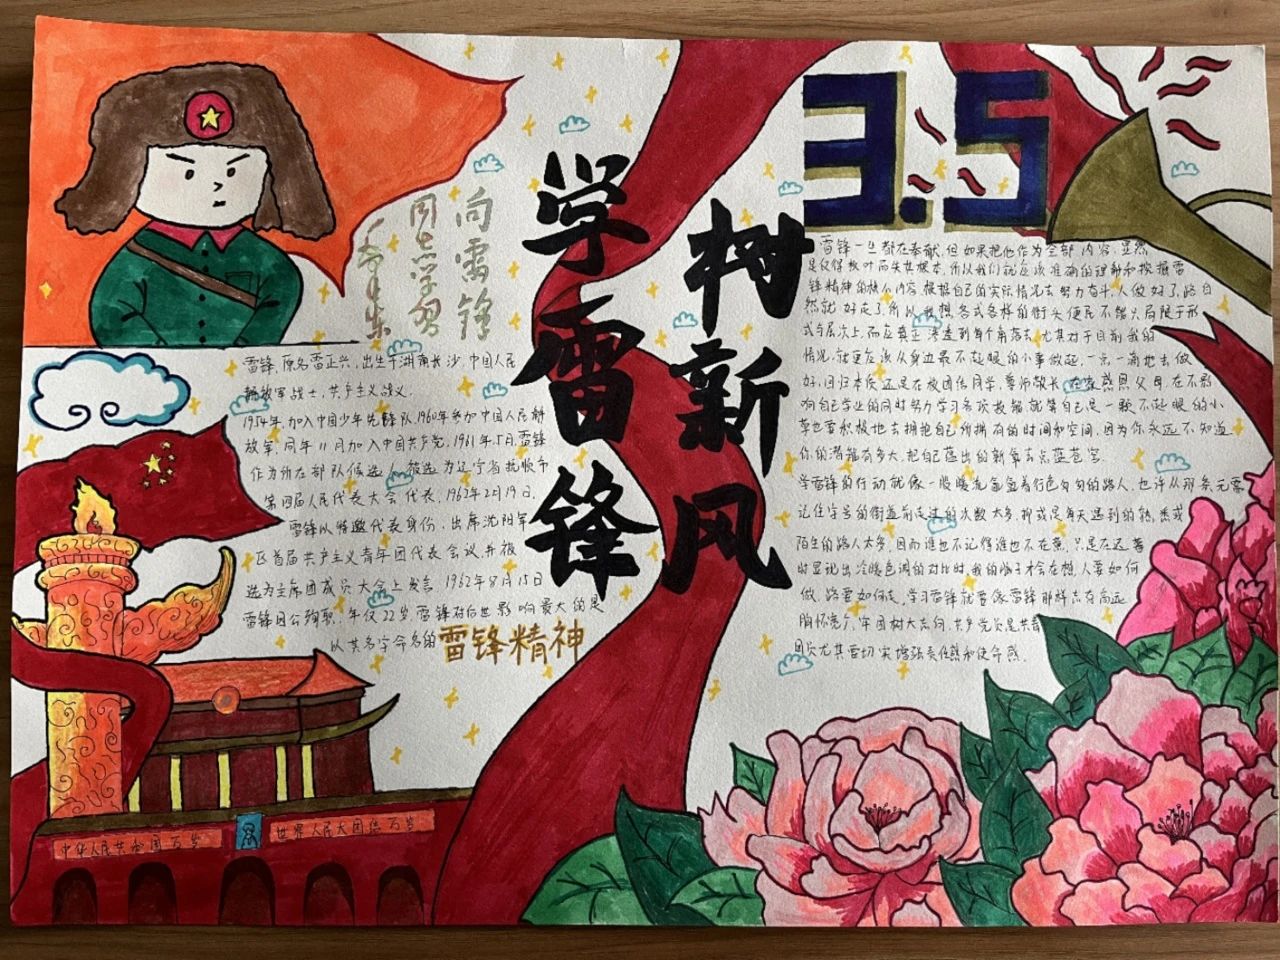 3.5
学雷锋
树新风
向雷锋
同志学习
毛泽东
雷锋,原名雷正兴,出生于湖南长沙,中国人民
解放军战士,共产主义战义
1954年加入中国少年先锋队,1960年参加中国人民解
放军,同年11月加入中国共产党,1961年5月,雷锋
作为所在部队候选人,被选为辽宁省抚顺市
第四届人民代表大会代表,1962年2月19日,
雷锋以特邀代表身份,出席沈阳军
区首届共产主义青年团代表会议并被
选为主席团成员大会上发言,1962年8月15日
雷锋因公殉职,年仅22岁,雷锋对后世影响最大的是
以其名字命名的雷锋精神
雷锋一生都在奉献,但如果把他作为全部内容,显然
是仅得枝叶而失其根本,所以我们就应该准确的理解和挖掘雷
锋精神的核心内容,根据自己的实际情况去努力奋斗,人做好了,路自
然就好走了,所以我想各式各样的街头便民不能只局限于形
式与层次上,而应真正渗透到每个角落去,尤其对于目前我的
情况,就更应该从身边最不起眼的小事做起,一点一滴地去做
好,回归本质还是在校团结同学,尊师敬长,在家感恩父母,在不影
响自己学业的同时努力学习各项技能,就算自己是一颗不起眼的小
草也要积极地去拥抱自己所拥有的时间和空间,因为你永远不知道
你的潜能有多大,把自己莲出的新芽去点蓝苍穹
学雷锋的行动就像一股暖流氤氲着行色匆匆的路人,也许从那条无需
记住字号的街道前走过的次数太多,抑或是每天遇到的熟悉或
陌生的路人太多,因而谁也不记得谁也不在意,只是在迟暮
时显现出冷暖色调的对比时,我的脑子才会在想,人要如何
做,路要如何走,学习雷锋就要像雷锋那样志存高远
胸怀宽广,牢固树大志向,共产党员是共青
团员尤其要切实增强责任感和使命感.
中华人民共和国万岁
世界人民大团结万岁